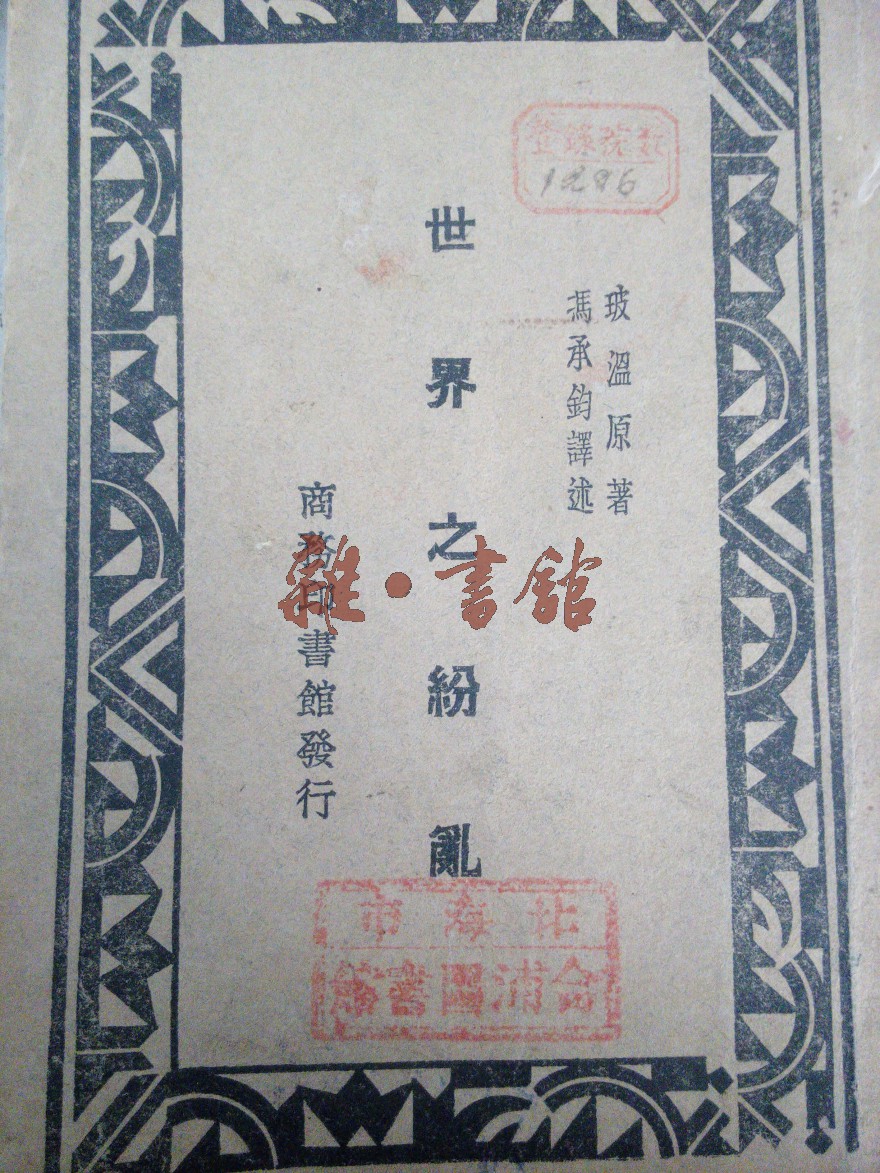 登錄號數
1286
玻溫原著
馮承鈞譯述
世界之紛亂
商務印書館發行
雜·書館
北海市
合浦圖書館